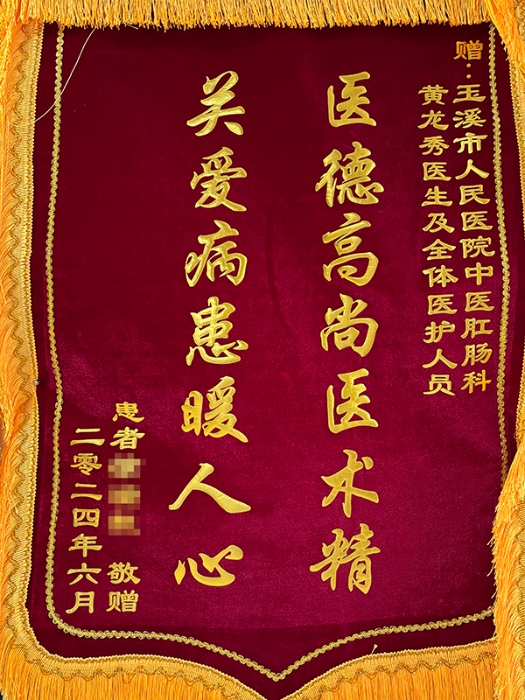 赠：玉溪市人民医院中医肛肠科
黄龙秀医生及全体医护人员
医德高尚医术精
关爱病患暖人心
患者 敬赠
二零二四年六月